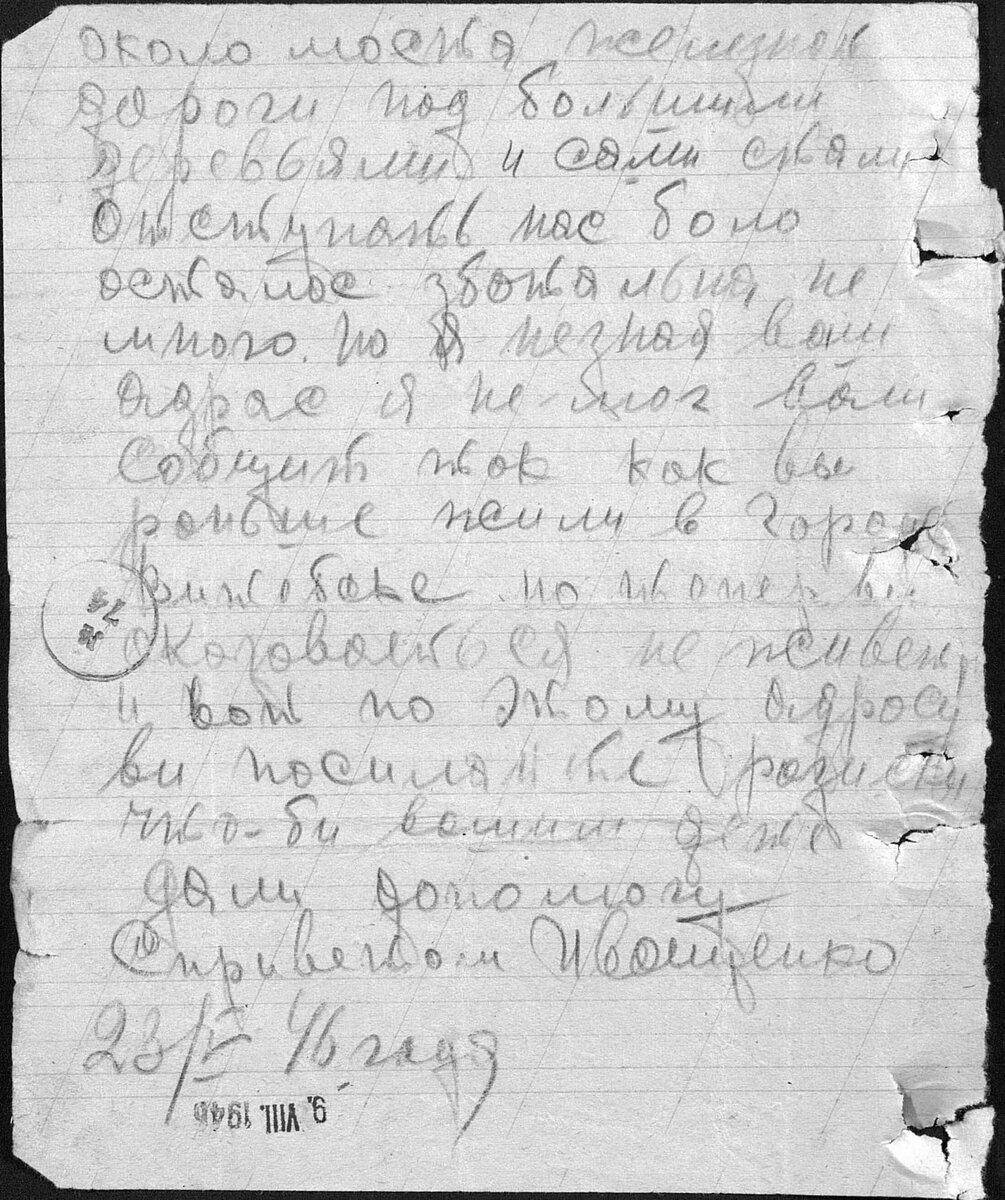 около моста железной
дароги под большими
деревьями и сами стали
отступать нас було
осталос збатальна не
много. но я незная ваш
адрас я не мог вам
сообщит так как вы
раньше жили в городе
Витебске но тепер ви
оказоваеться не живет,
и вот по этому адросу
ви посилайте розиски
что-би вашим детя
дали допомогу
С приветом Иващенко
23/V 46 года
9. VIII. 1946
74